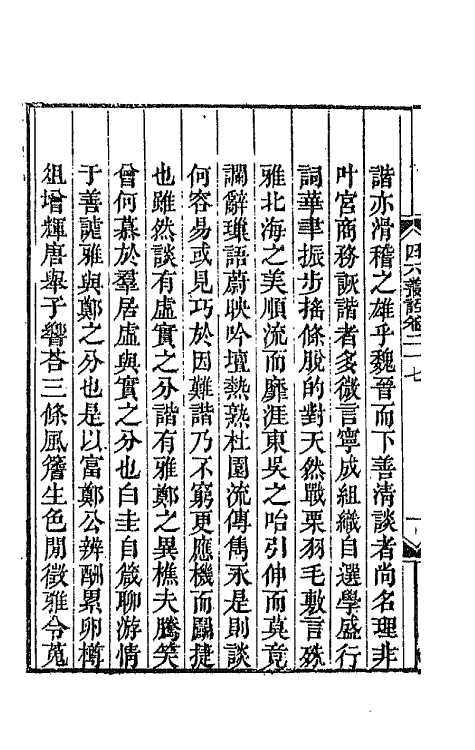 四六叢話卷二十七
諧亦滑稽之雄乎魏晉而下善清談者尚名理非
叶宮商務詼諧者多微言寧成組織自選學盛行
詞華聿振步搖條脫的對天然戰栗羽毛敷言殊
雅北海之美順流而靡涯東吳之咍引伸而莫竟
讕辭璅語蔚映吟壇熱熟杜園流傳雋永是則談
何容易或見巧於因難諧乃不窮更應機而鬭捷
也雖然談有虛實之分諧有雅鄭之異樵夫騰笑
曾何慕於羣居虛與實之分也白圭自箴聊游情
于善謔雅與鄭之分也是以富鄭公辨酬累卵樽
俎增輝唐舉子響荅三條風簷生色閒徵雅令蒐